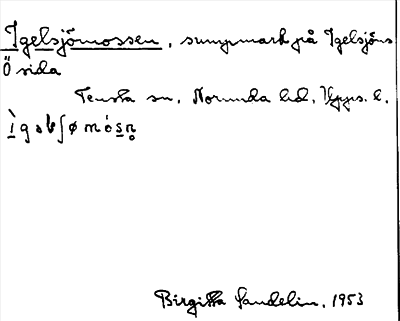 Igelsjömossen, sumpmark på Igelsjöns
Ö sida
Tensta sn, Norunda hd, Upps. l.
Birgitta Sandelin, 1953